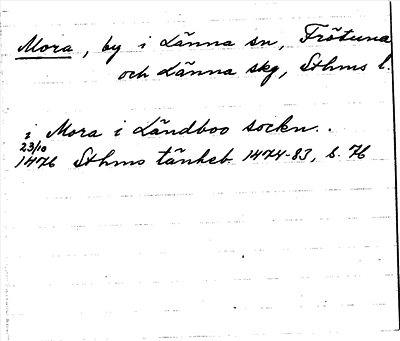 Mora, by i Länna sn, Frötuna
och Länna skg, Sthms l.
i Mora i Ländboo sockn.
23/10
1476 Sthms tänkeb 1474-83, s. 76